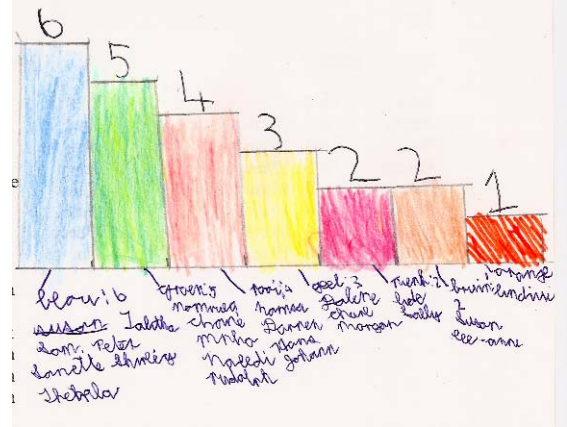 6
5
4
3
2
2
1
e
blou: 6
susan Tabitha
Sam. Peter
Sanette Shirley
Thebela
groen: 5
nomusa
chone
mpho
Naledi
Rudolph
rooi: 4
hamsa
Darren
Hans
Johann
geel: 3
Dalene
chane
morgan
pienk: 2
Sally
bruin:
2
Susan
lee-anne
orange
lindiwe